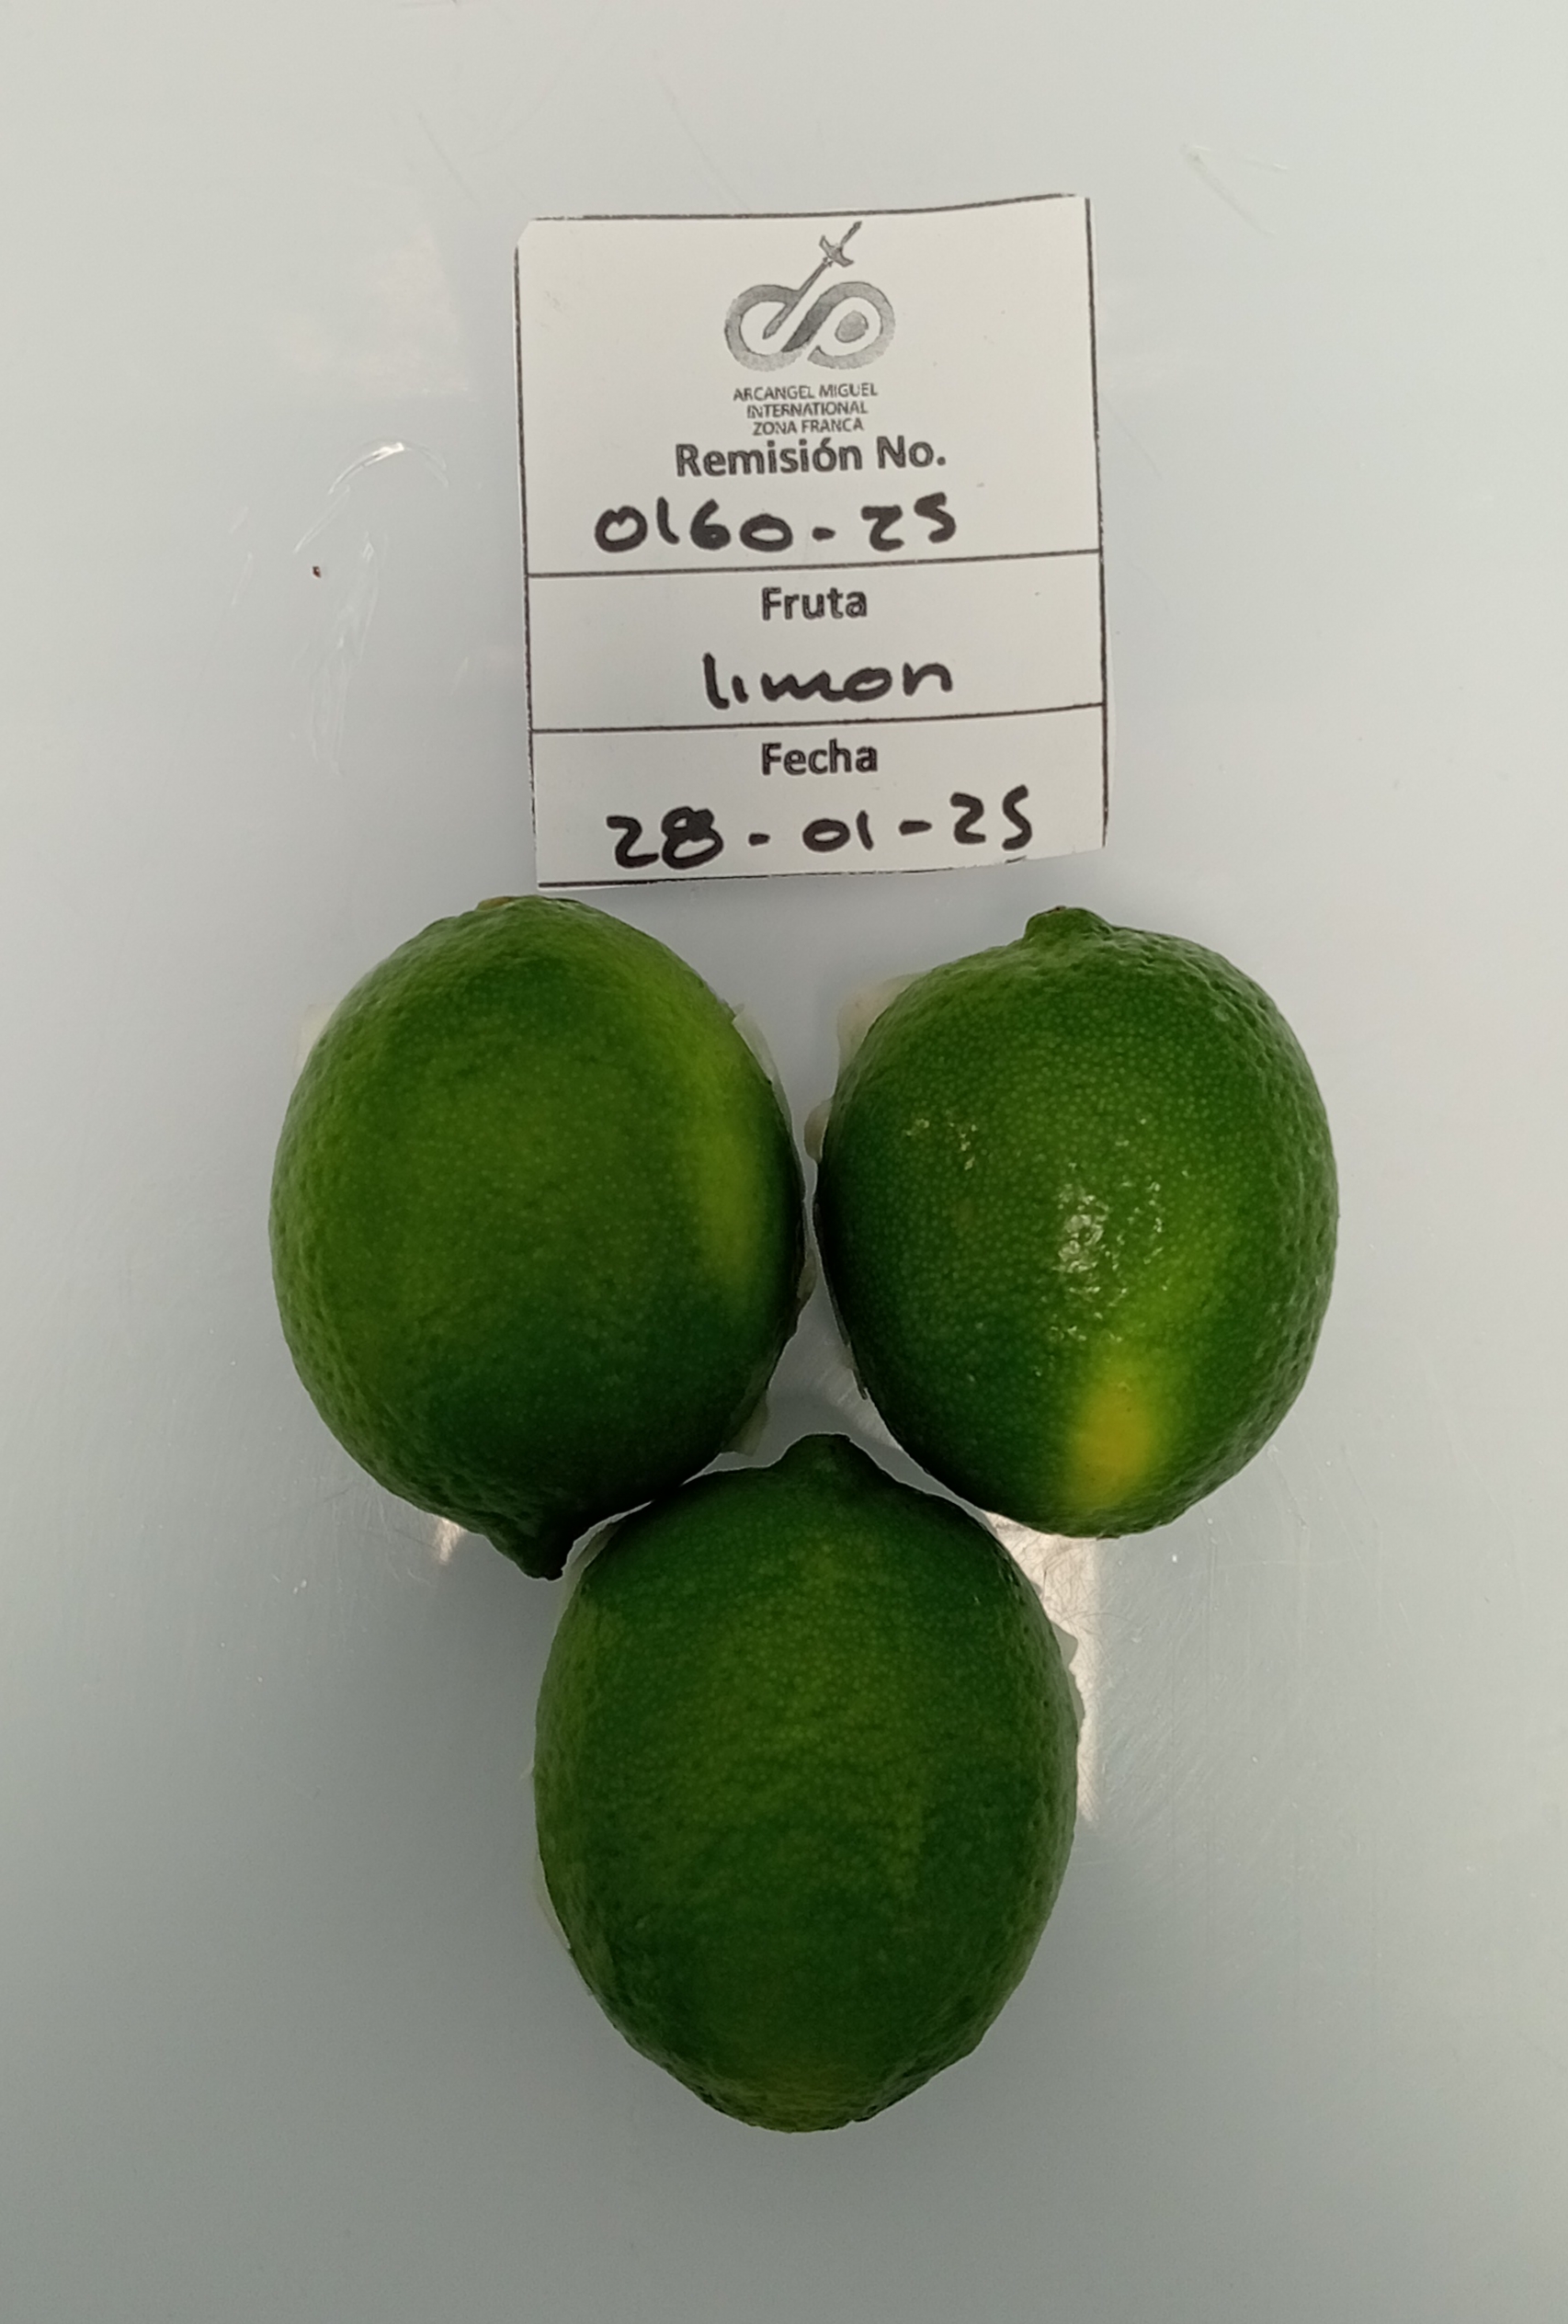 ARCANGEL MIGUEL
INTERNATIONAL
ZONA FRANCA
Remisión No.
0160-25
Fruta
limon
Fecha
28-01-25